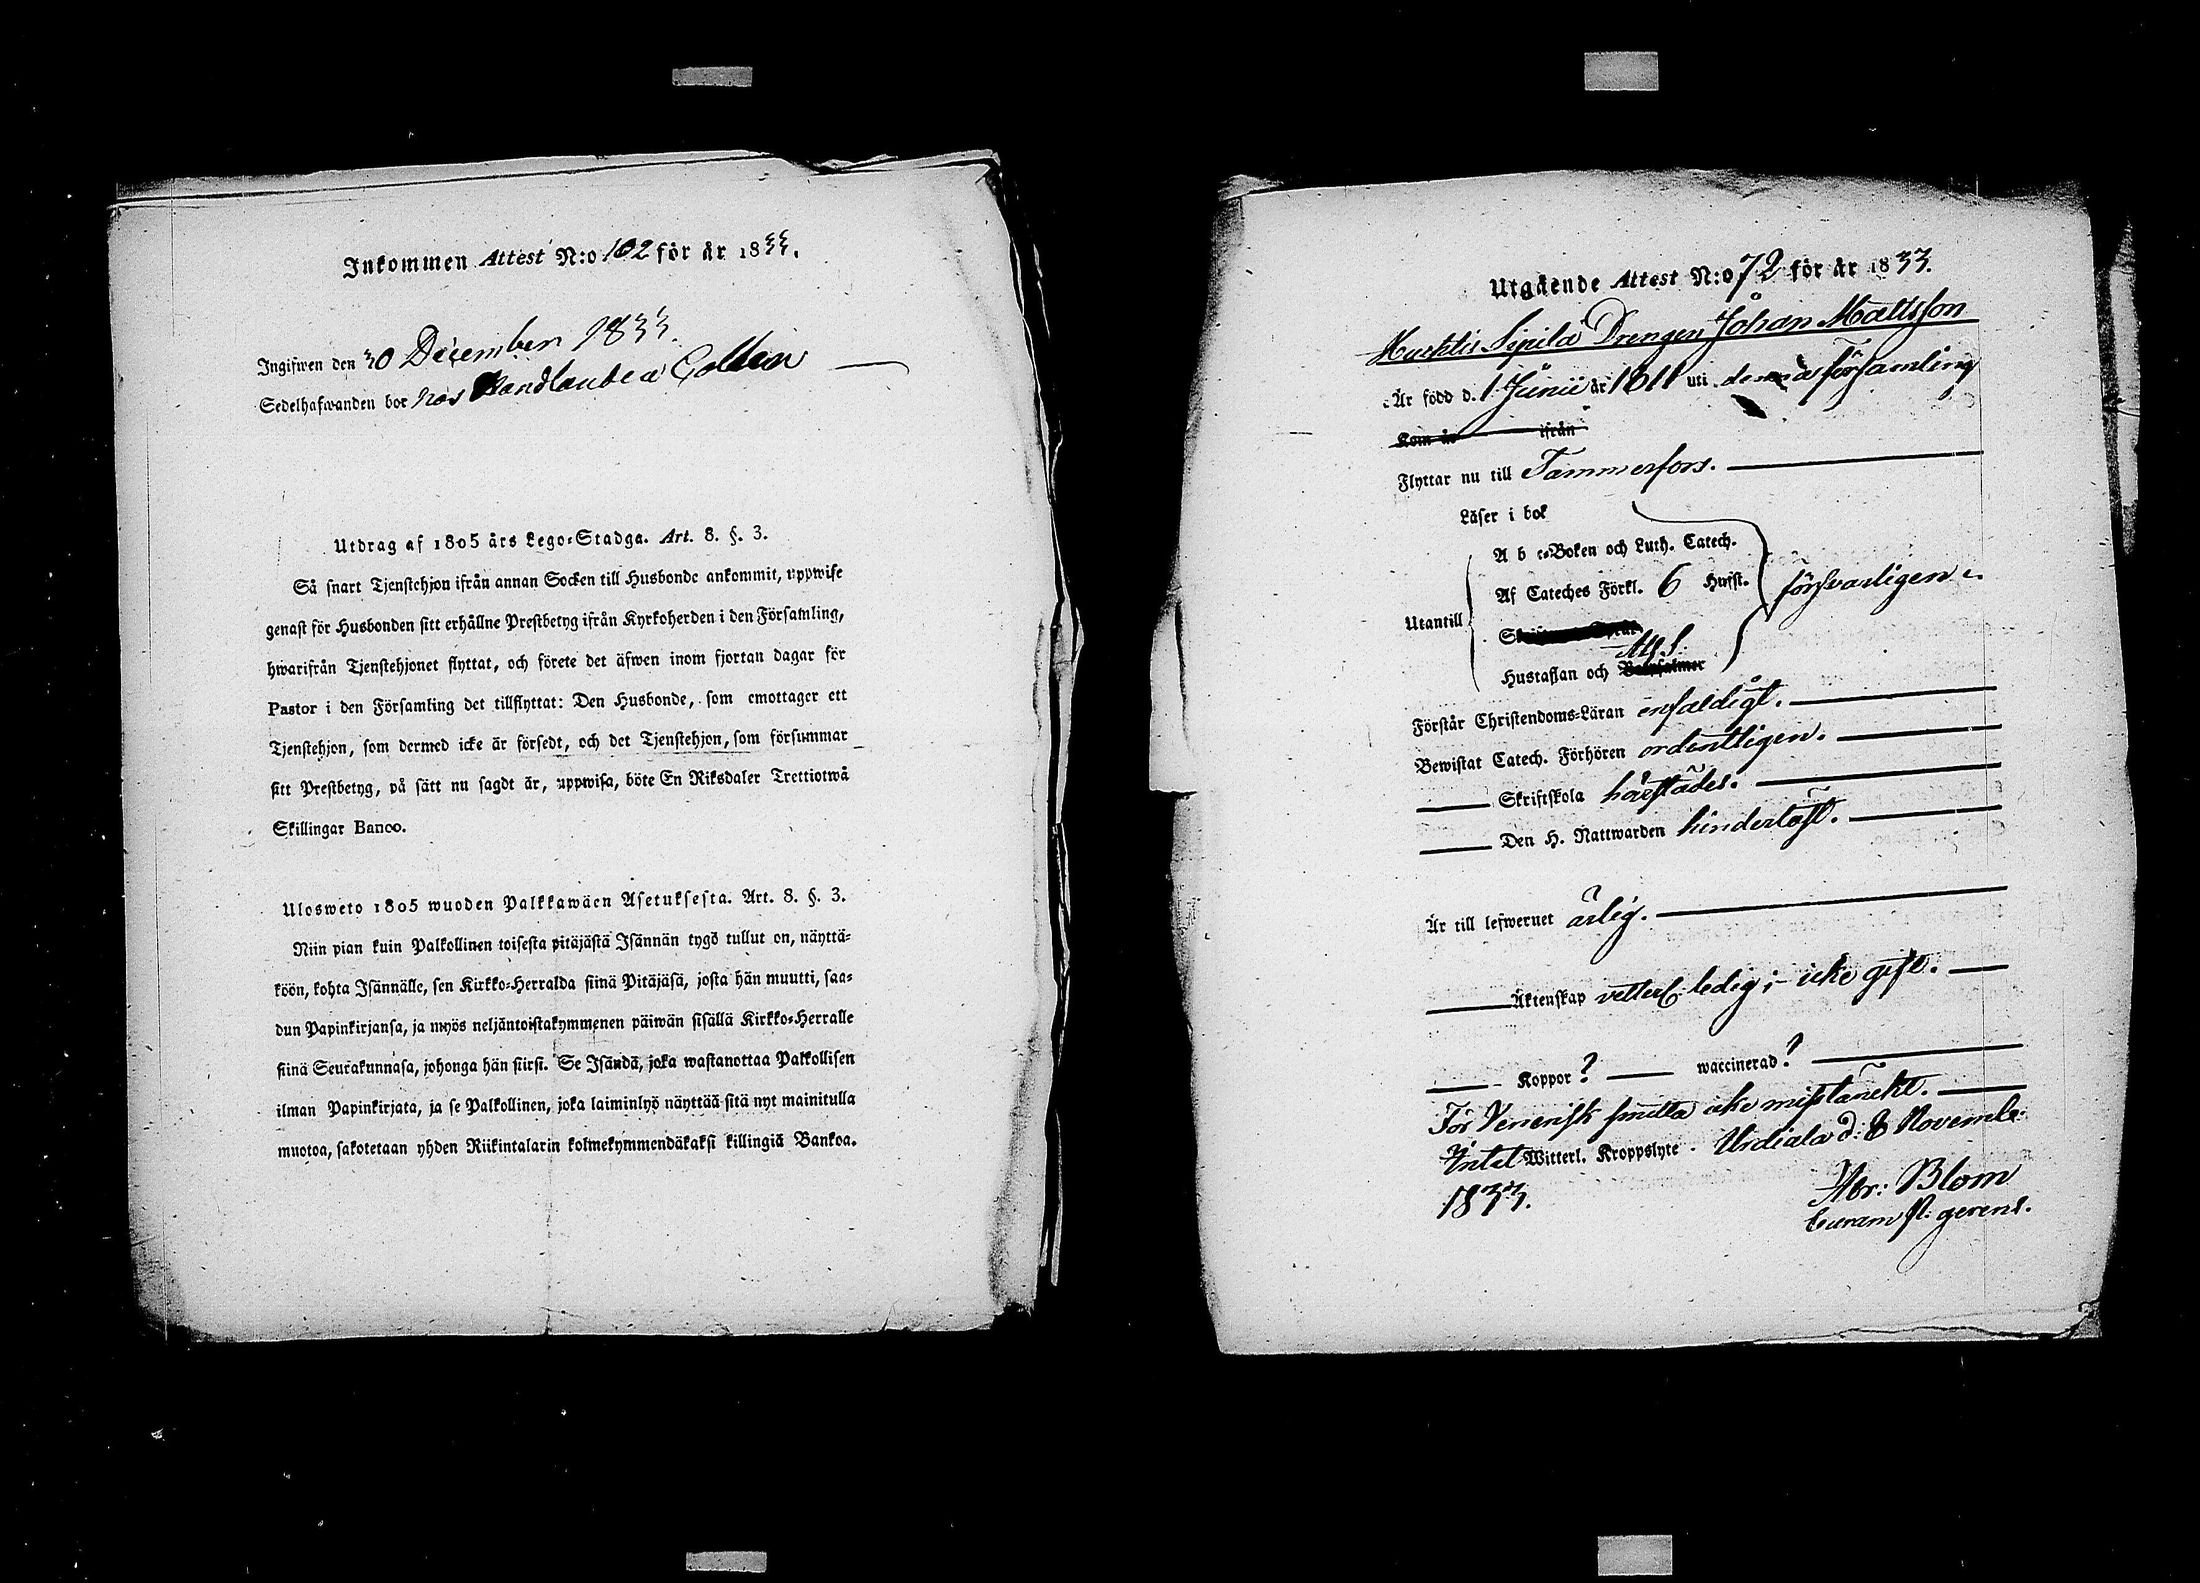 Inkommen Attest N:o 102 för år 1833.
Ingifwen den 30 December 1833.
Sedelhafwanden bor hos Handlande a Collin
Utdrag af 1805 års Lego-Stadga. Art. 8. §. 3.
Så snart Tjenstehjon ifrån annan Socken till Husbonde ankommit, uppwise
genast för Husbonden sitt erhållne Prestbetyg ifrån Kyrkoherden i den Församling,
hwarifrån Tjenstehjonet flyttat, och förete det äfwen inom fjortan dagar för
Pastor i den Församling det tillflyttat: Den Husbonde, som emottager ett
Tjenstehjon, som dermed icke är försedt, och det Tjenstehjon, som försummar
sitt Prestbetyg, på sätt nu sagdt är, uppwisa, böte En Riksdaler Trettiotwå
Skillingar Banco.
Ulosweto 1805 wuoden Palkkawäen Asetuksesta. Art. 8. §. 3.
Niin pian kuin Palkollinen toisesta pitäjästä Isännän tygö tullut on, näyttä-
köön, kohta Isännälle, sen Kirkko-Herralda siinä Pitäjäsä, josta hän muutti, saa-
dun Papinkirjansa, ja myös neljäntoistakymmenen päiwän sisällä Kirkko-Herralle
siinä Seurakunnasa, johonga hän siirsi. Se Isändä, joka wastanottaa Palkollisen
ilman Papinkirjata, ja se Palkollinen, joka laiminlyö näyttää sitä nyt mainitulla
muotoa, sakotetaan yhden Riikintalarin kolmekymmendäkaksi killingiä Bankoa.
Utgående Attest N:o 72 för år 1833.
Huhtis Sipilä Drengen Johan Mattsson
Är född d. 1 Junii år 1811 uti denna församling
Kom år ifrån
Flyttar nu till Tammerfors.
Läser i bok
A b c-Boken och Luth. Catech.
Af Cateches Förkl. 6 Hufst. försvarligen
Utantill
Hustaflan och Ath. S.
Förstår Christendoms-Läran enfaldigt.
Bewistat Catech. Förhören ordentligen.
Skriftskola härstädes.
Den H. Nattwarden hinderlöst.
Är till lefwernet ärlig.
Äktenskap vetterl. ledig; icke gift.
Koppor? waccinerad?
För Venerisk smitta icke misstänckt.
Intet Witterl. Kroppslyte. Urdiala d: 8 Novemb:
1833.
Abr: Blom
Curam p: gerens.